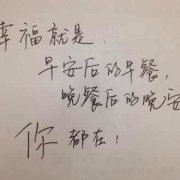 幸福就是.
早安后的早餐,
晚餐后的晚安
你都在!